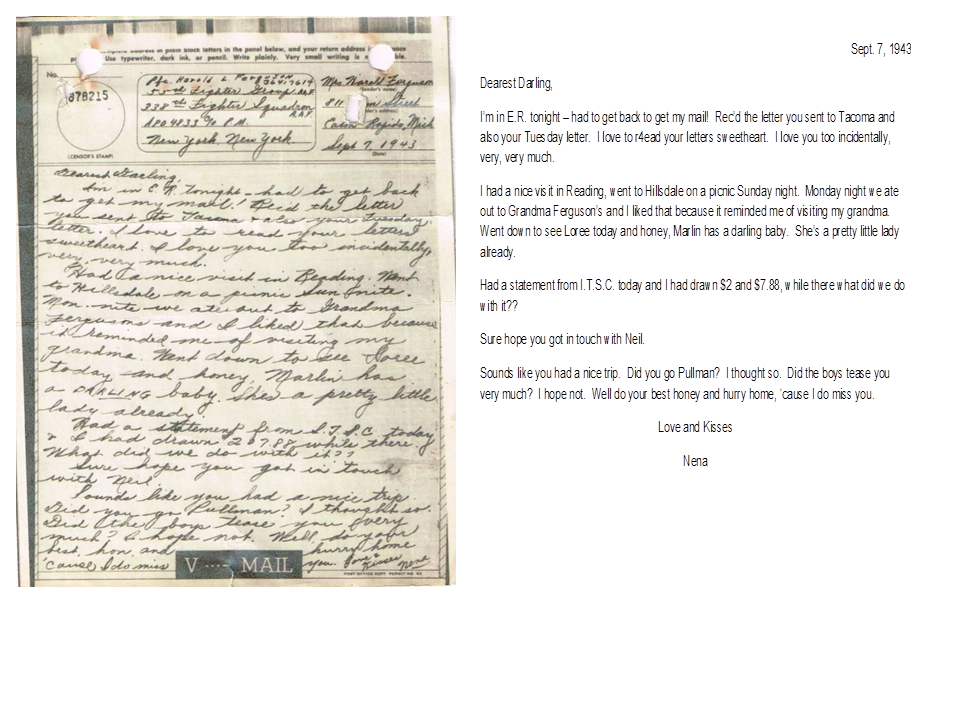 complete address in plain block letters in the panel below, and your return address in
Use typewriter, dark ink, or pencil. Write plainly. Very small writing is
No.
678215
(CENSOR'S STAMP)
Pfc. Harold L. Ferguson
55th Fighter Group
338th Fighter Squadron
APO 4833 % P.M.
New York, New York
Mrs Harold Ferguson
(Sender's name)
811 Street
(Sender's address)
Eaton Rapids, Mich
Sept 7, 1943
(Date)
Dearest Darling,
I'm in E.R. tonight – had to get back
to get my mail! Rec'd the letter
you sent to Tacoma & also your Tuesday
letter. I love to read your letters
sweetheart. I love you too incidentally,
very, very much.
Had a nice visit in Reading. Went
to Hillsdale on a picnic Sun. nite.
Mon. nite we ate out to Grandma
Fergusons and I liked that because
it reminded me of visiting my
grandma. Went down to see Loree
today and honey, Marlin has
a DARLING baby. She's a pretty little
lady already.
Had a statement from I.T.S.C. today
& I had drawn 207.88 while there.
What did we do with it??
Sure hope you got in touch
with Neil.
Sounds like you had a nice trip
Did you go Pullman? I thought so.
Did the boys tease you very
much? I hope not. Well do your
best, hon, and hurry home
'cause I do miss you. Love & Kisses Nena
V ···– MAIL
POST OFFICE DEPT. PERMIT NO.
Sept. 7, 1943
Dearest Darling,
I'm in E.R. tonight – had to get back to get my mail! Rec'd the letter you sent to Tacoma and
also your Tuesday letter. I love to r4ead your letters sweetheart. I love you too incidentally,
very, very much.
I had a nice visit in Reading, went to Hillsdale on a picnic Sunday night. Monday night we ate
out to Grandma Ferguson's and I liked that because it reminded me of visiting my grandma.
Went down to see Loree today and honey, Marlin has a darling baby. She's a pretty little lady
already.
Had a statement from I.T.S.C. today and I had drawn $2 and $7.88, while there what did we do
with it??
Sure hope you got in touch with Neil.
Sounds like you had a nice trip. Did you go Pullman? I thought so. Did the boys tease you
very much? I hope not. Well do your best honey and hurry home, 'cause I do miss you.
Love and Kisses
Nena